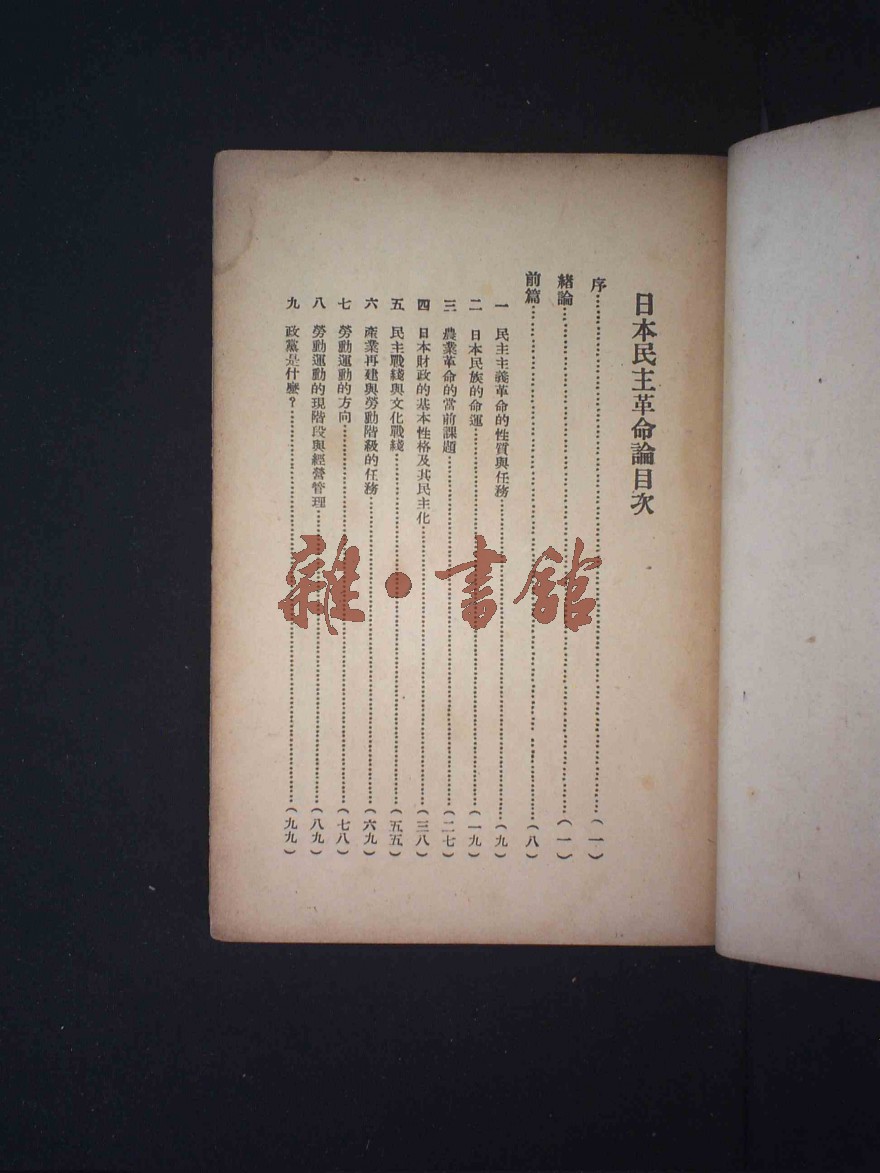 日本民主革命論目次
序……(一)
緒論……(一)
前篇……(八)
一 民主主義革命的性質與任務……(九)
二 日本民族的命運……(一九)
三 農業革命的當前課題……(二七)
四 日本財政的基本性格及其民主化……(三八)
五 民主戰綫與文化戰綫……(五五)
六 產業再建與勞動階級的任務……(六九)
七 勞動運動的方向……(七八)
八 勞動運動的現階段與經營管理……(八九)
九 政黨是什麼?……(九九)
雜·書館